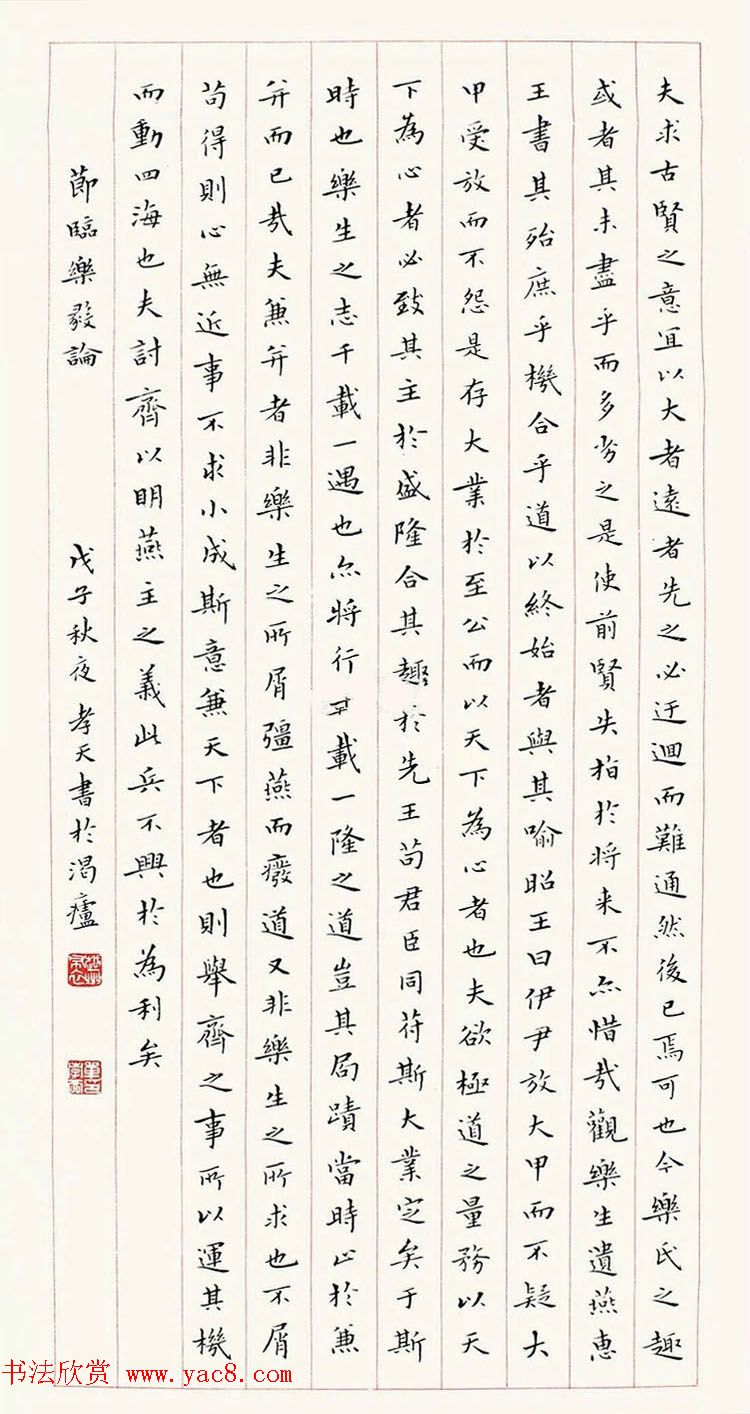 夫求古賢之意宜以大者遠者先之必迂迴而難通然後已焉可也今樂氏之趣
或者其未盡乎而多劣之是使前賢失指於将来不亦惜哉觀樂生遺燕惠
王書其殆庶乎機合乎道以終始者與其喻昭王曰伊尹放大甲而不疑大
甲受放而不怨是存大業於至公而以天下為心者也夫欲極道之量務以天
下為心者必致其主於盛隆合其趣於先王苟君臣同苻斯大業定矣于斯
時也樂生之志千載一遇也亦将行千載一隆之道豈其局蹟當時止於兼
并而已哉夫兼并者非樂生之所屑彊燕而癈道又非樂生之所求也不屑
苟得則心無近事不求小成斯意兼天下者也則舉齊之事所以運其機
而動四海也夫討齊以明燕主之義此兵不興於為利矣
節臨樂毅論 戊子秋夜孝天書於渴廬
书法欣赏 www.yac8.com